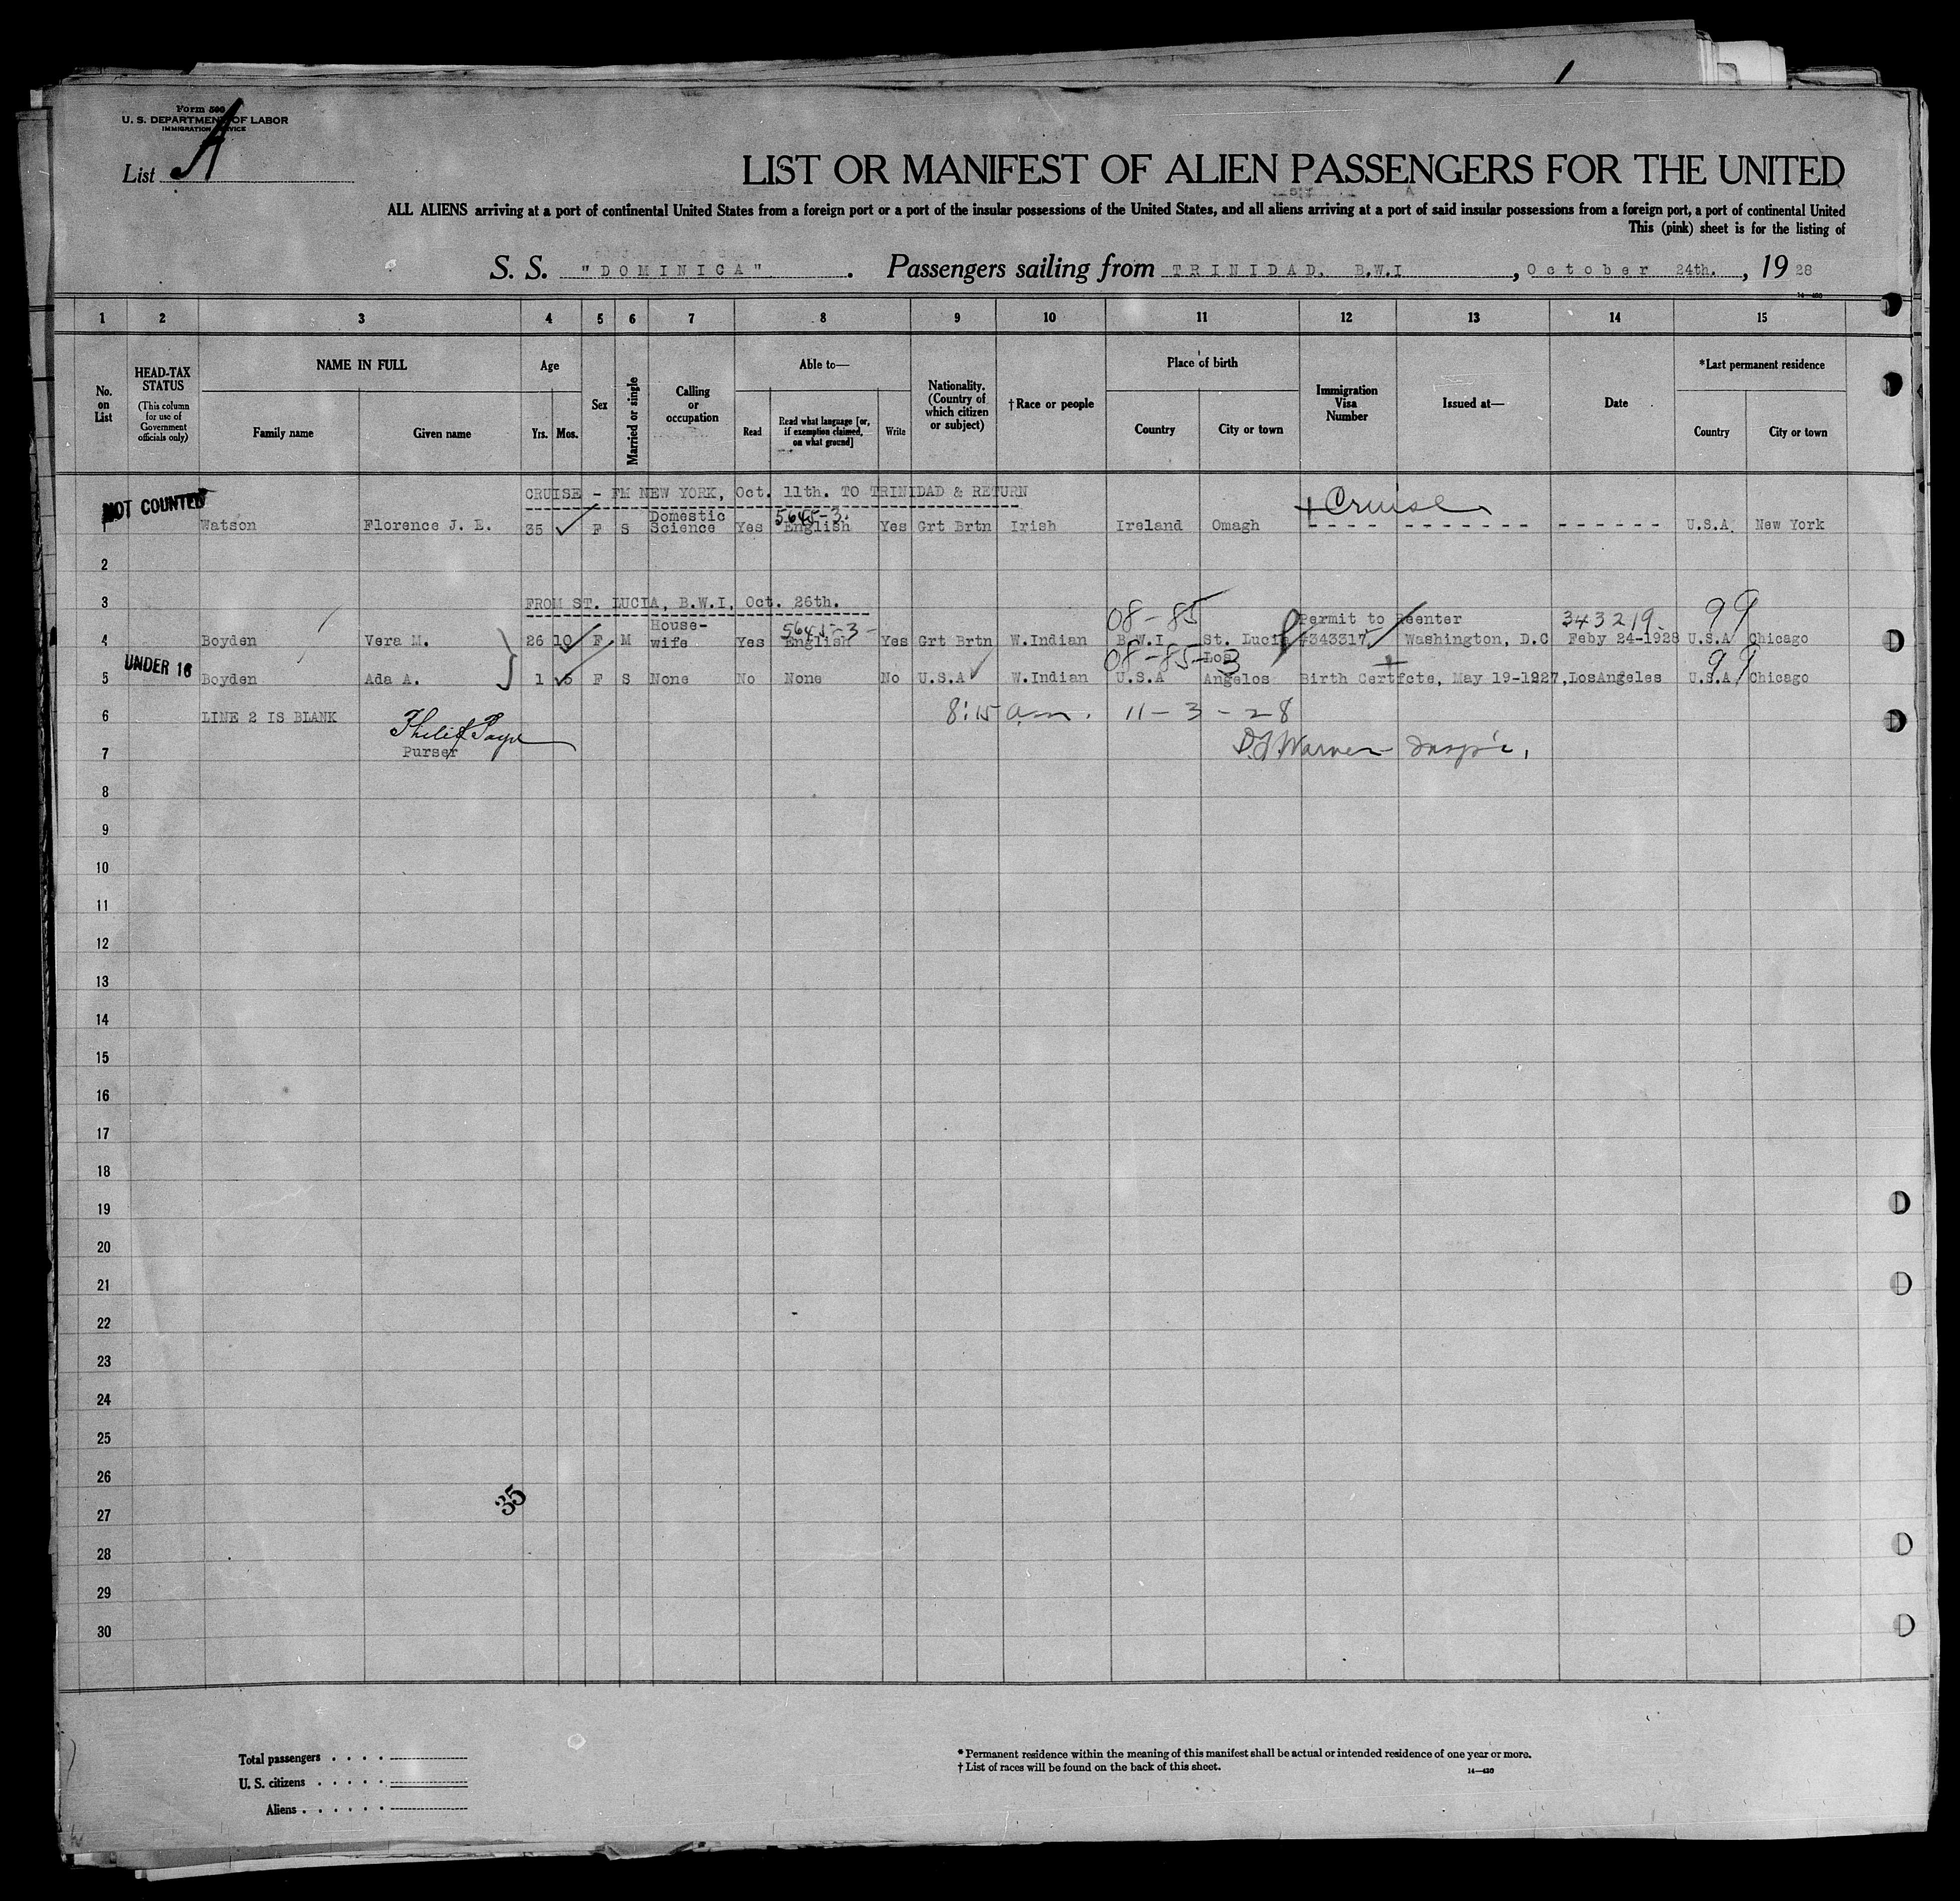 Form 500
U. S. DEPARTMENT OF LABOR
IMMIGRATION SERVICE
List A
LIST OR MANIFEST OF ALIEN PASSENGERS FOR THE UNITED
ALL ALIENS arriving at a port of continental United States from a foreign port or a port of the insular possessions of the United States, and all aliens arriving at a port of said insular possessions from a foreign port, a port of continental United
This (pink) sheet is for the listing of
S. S. "DOMINICA" . Passengers sailing from TRINIDAD. B.W.I , October 24th. , 19 28
1 2 3 4 5 6 7 8 9 10 11 12 13 14 15
No. on List
HEAD-TAX STATUS (This column for use of Government officials only)
NAME IN FULL
Family name Given name
Age
Yrs. Mos.
Sex
Married or single
Calling or occupation
Able to—
Read
Read what language [or, if exemption claimed, on what ground]
Write
Nationality. (Country of which citizen or subject)
†Race or people
Place of birth
Country City or town
Immigration Visa Number
Issued at—
Date
*Last permanent residence
Country City or town
CRUISE - FM NEW YORK, Oct. 11th. TO TRINIDAD & RETURN
NOT COUNTED
+ Cruise
Domestic 5645-3.
1 Watson Florence J. E. 35 F S Science Yes English Yes Grt Brtn Irish Ireland Omagh U.S.A New York
2
3 FROM ST. LUCIA, B.W.I, Oct. 26th.
House- 5645-3- 08-85 Permit to Reenter 343219. 99
4 Boyden Vera M. 26 10 F M wife Yes English Yes Grt Brtn W.Indian B.W.I St. Lucia #343317 Washington, D.C Feby 24-1928 U.S.A Chicago
UNDER 16 08-85-3 Los 99
5 Boyden Ada A. 1 5 F S None No None No U.S.A W.Indian U.S.A Angelos Birth Certfcte, May 19-1927, LosAngeles U.S.A Chicago
6 LINE 2 IS BLANK 8:15 a.m. 11-3-28
Philip
7 Purser Warner Insp'r,
8
9
10
11
12
13
14
15
16
17
18
19
20
21
22
23
24
25
26
35
27
28
29
30
Total passengers . . . .
U. S. citizens . . . . .
Aliens . . . . . .
* Permanent residence within the meaning of this manifest shall be actual or intended residence of one year or more.
† List of races will be found on the back of this sheet.
14—430